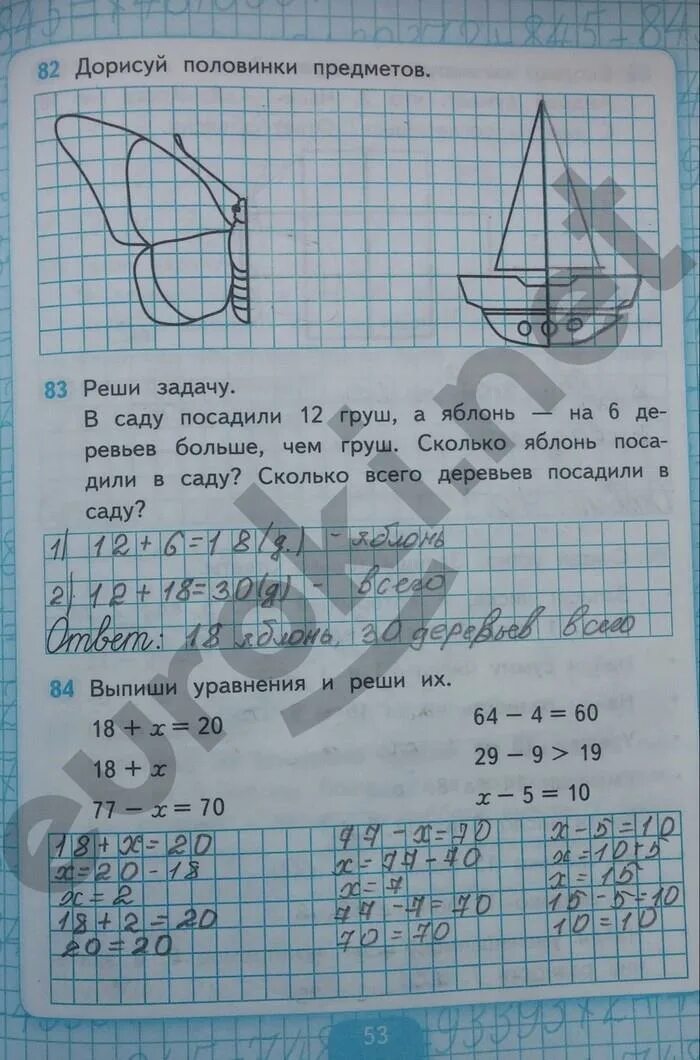 82 Дорисуй половинки предметов.
83 Реши задачу.
В саду посадили 12 груш, а яблонь — на 6 де-
ревьев больше, чем груш. Сколько яблонь поса-
дили в саду? Сколько всего деревьев посадили в
саду?
1) 12 + 6 = 18 (д.) - яблонь
2) 12 + 18 = 30 (д) - всего
Ответ: 18 яблонь, 30 деревьев всего
84 Выпиши уравнения и реши их.
18 + x = 20
64 − 4 = 60
18 + x
29 − 9 > 19
77 − x = 70
x − 5 = 10
18 + x = 20
x = 20 - 18
x = 2
18 + 2 = 20
20 = 20
77 - x = 70
x = 77 - 70
x = 7
77 - 7 = 70
70 = 70
x - 5 = 10
x = 10 + 5
x = 15
15 - 5 = 10
10 = 10
53
euroki.net